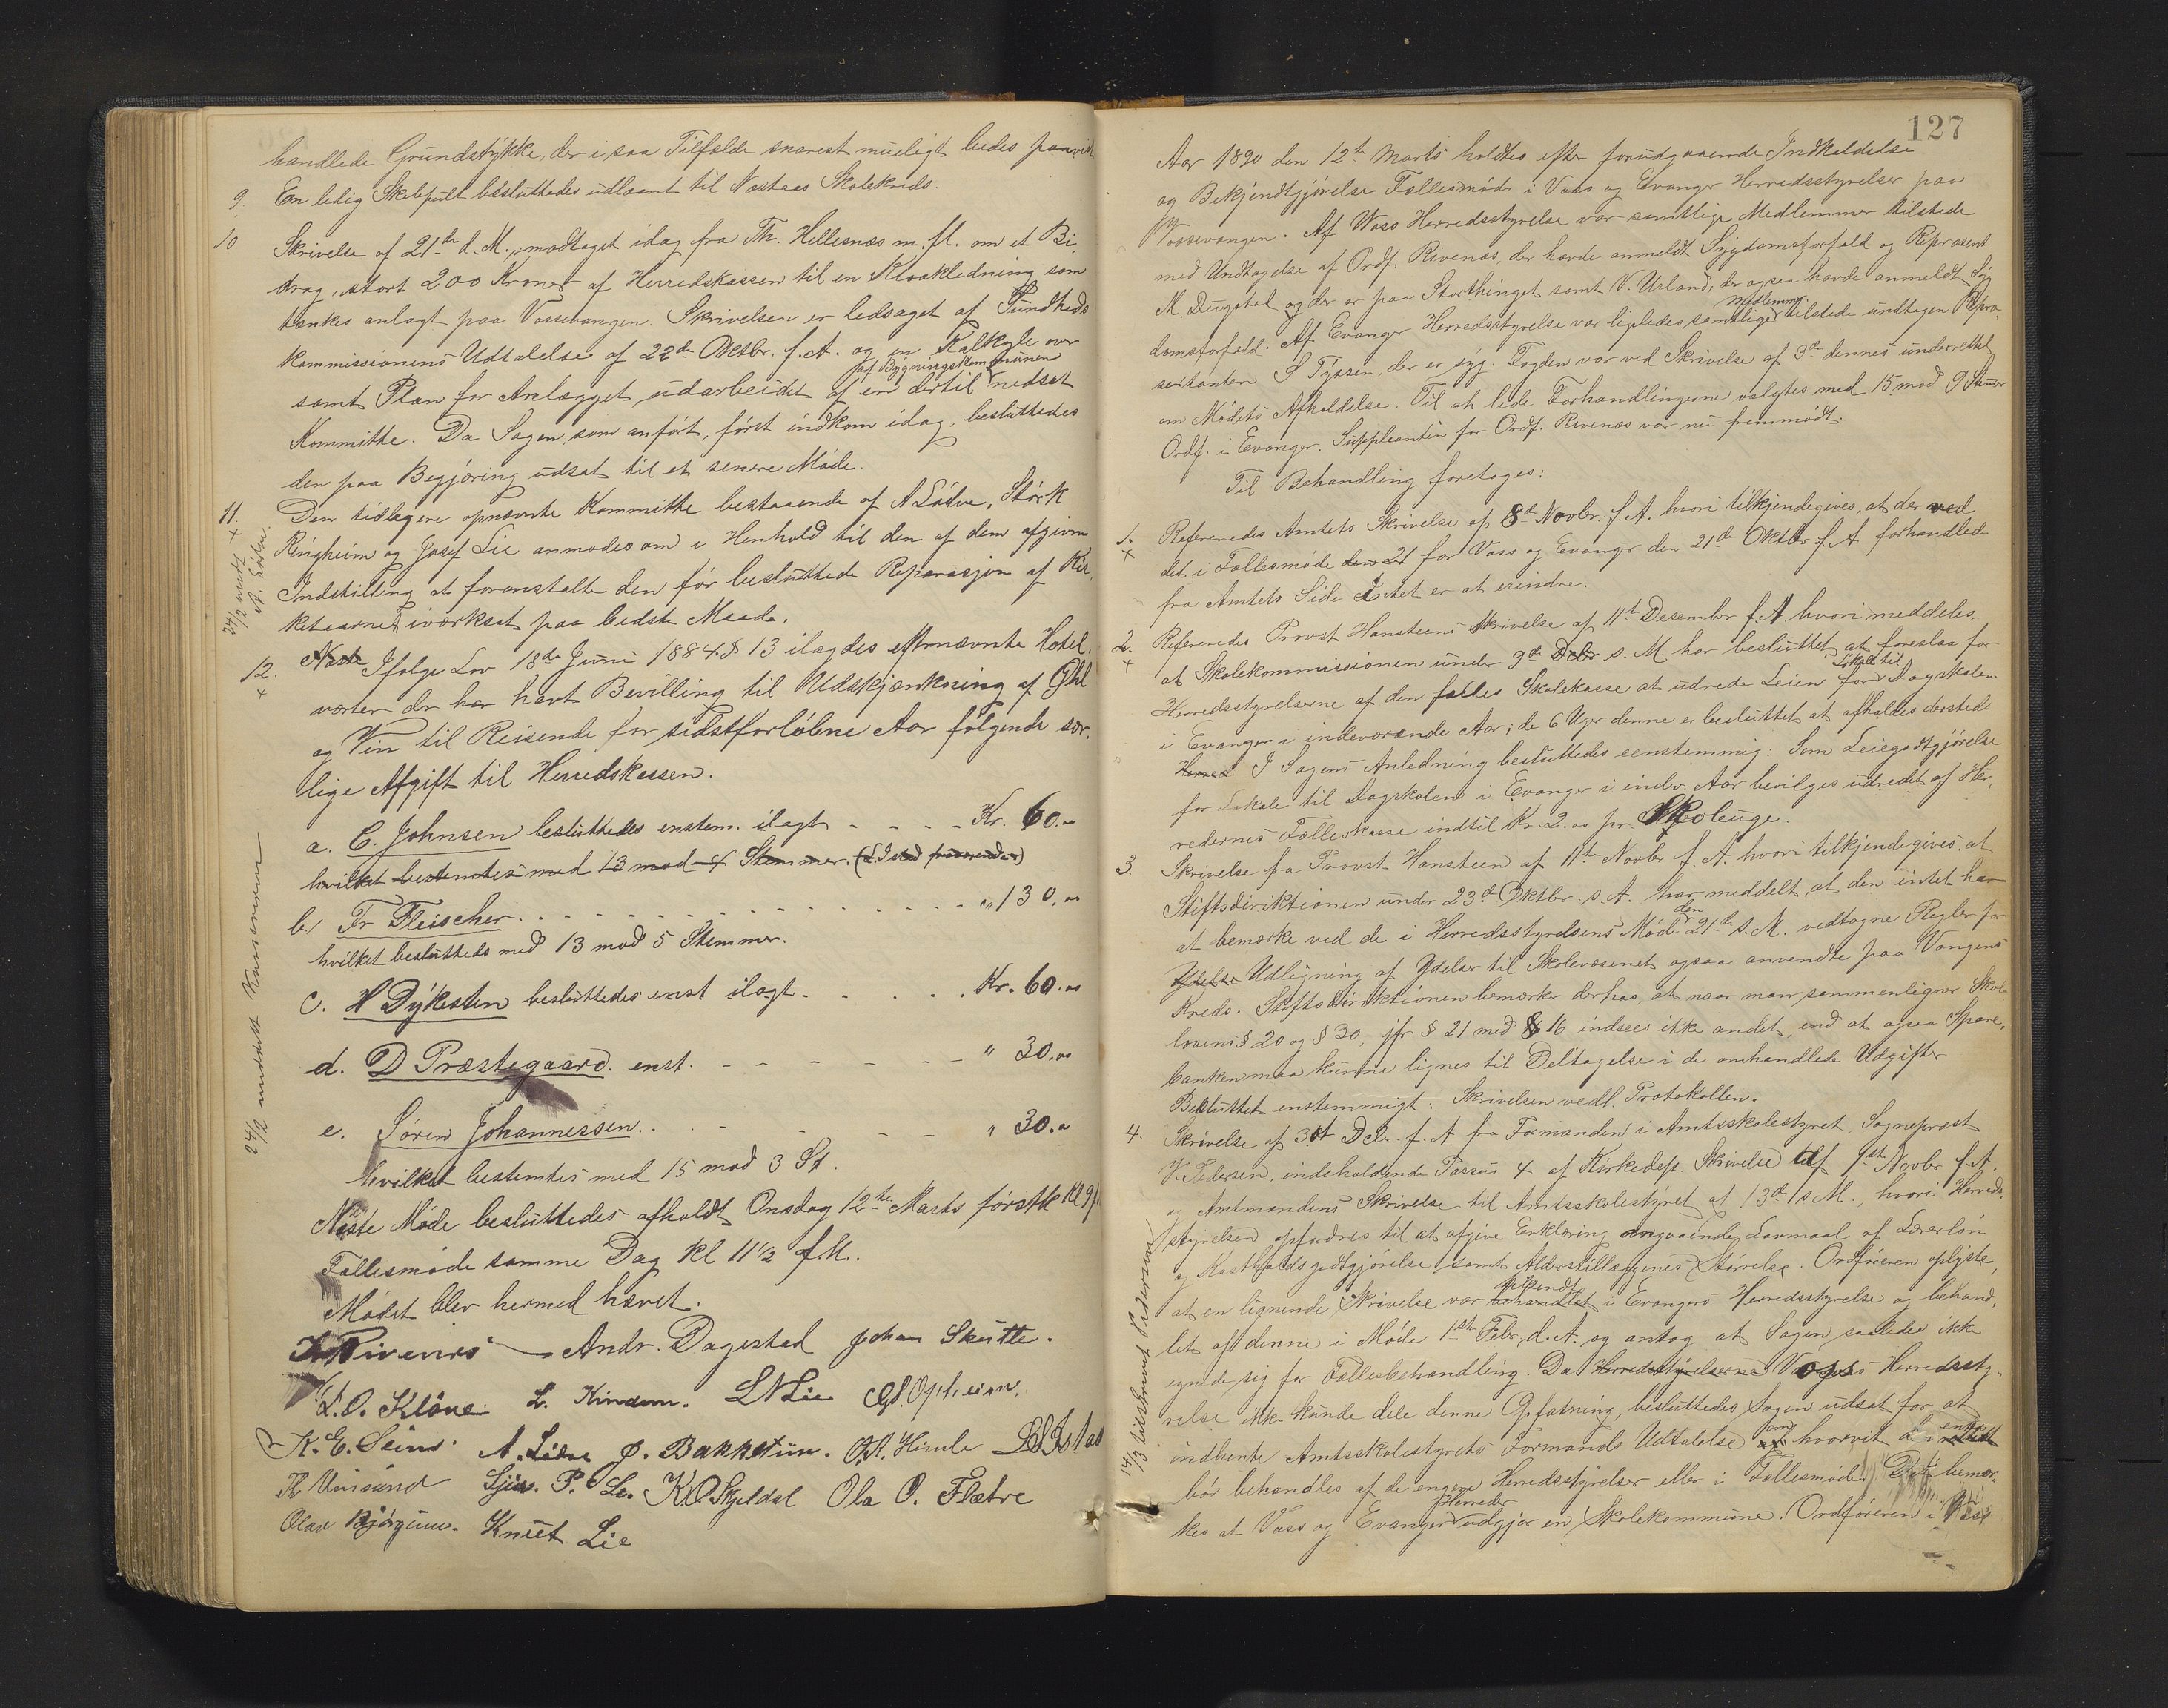 handlede Grundstykke, der i saa Tilfælde snarest mueligt bedes paavist
9. En ledig Skolepult besluttedes udlaant til Nøstaas Skolekreds.
10 Skrivelse af 21de d. M., modtaget idag fra Th. Hellesnæs m. fl. om et Bi-
drag, stort 200 Kroner af Herredskassen til en Kloakledning som
tænkes anlagt paa Vossevangen. Skrivelsen er ledsaget af Sundheds
kommissionens Udtalelse af 22de Oktbr. f. A. og en Kalkyle over
samt Plan for Anlægget udarbeidet af en dertil af Bygningskommunen nedsat
Kommitte. Da Sagen, som anført, først indkom idag, besluttedes
den paa Begjæring udsat til et senere Møde.
11. Den tidligere opnævnte Kommitte bestaaende af A Lødve, Størk
x
Ringheim og Josef Lie anmodes om i Henhold til den af dem afgivne
Indstilling at foranstalte den før besluttede Reparasjon af Kir-
ketaarnet iværksat paa bedste Maade.
24/2 meddt A. Lødve.
12. Næste Ifølge Lov 18de Juni 1884 § 13 ilagdes efternævnte Hotel-
x
værter der har havt Bevilling til Udskjænkning af Øhl
og Vin til Reisende for sidstforløbne Aar følgende sær-
lige Afgift til Herredskassen.
a. C. Johnsen besluttedes enstem. ilagt - - - - Kr. 60.00
hvilket bestemtes med 13 mod 4 Stemmer.
b/ Fr Fleischer. . . . . . . . . . . . . . . „ 130.00
hvilket besluttedes med 13 mod 5 Stemmer.
c. H Dykesten besluttedes enst ilagt. . . . . . Kr. 60.00
d. D Præstegaard. enst. - - - - - - - " 30.00
e. Søren Johannessen. . - - - - - " 30.00
hvilket bestemtes med 15 mod 3 St.
24/2 meddelt Kasserern
Næste Møde besluttedes afholdt Onsdag 12te Marts førstk Kl 9 f.
Fællesmøde samme Dag Kl 11 1/2 f M..
Mødet blev hermed hævet.
Rivenes Andr. Dagestad Johan Skutle.
L. O. Kløve L. Kindem. L N Lie Gl. Opheim.
K. E. Seim. A. Lødve O. Bakketun. O. A. Himle
Th Vinsand Sjur. P. Le. K O Skjeldal Ola O. Flatre
Olav Bjørgum. Knut Lie
127
Aar 1890 den 12te Marts holdtes efter forudgaaende Indkaldelse
og Bekjendtgjørelse Fællesmøde i Voss og Evanger Herredsstyrelser paa
Vossevangen. Af Voss Herredsstyrelse var samtlige Medlemmer tilstede
med Undtagelse af Ordf. Rivenæs, der havde anmeldt Sygdomsforfald og Repræsent.
M. Dugstad og der er paa Storthinget samt V. Urland, der ogsaa havde anmeldt Syg
domsforfald. Af Evanger Herredsstyrelse var ligeledes samtlige Medlemmer tilstede undtagen Repræ-
sentanten S Tyssen, der er syg. Fogden var ved Skrivelse af 3de dennes underrettet
om Mødets Afholdelse. Til at lede Forhandlingerne valgtes med 15 mod 9 Stemmer
Ordf. i Evanger. Suppleanten for Ordf. Rivenæs var nu fremmødt.
Til Behandling foretoges:
1. Refereredes Amtets Skrivelse af 8de Novbr. f. A. hvori tilkjendegives, at der ved
x
det i Fællesmøde den 21 for Voss og Evanger den 21de Oktbr f. A forhandlede
fra Amtets Side Intet er at erindre.
2. Refereredes Provst Hansteens Skrivelse af 11te Desember f. A. hvori meddeles,
x
at Skolekommissionen under 9de Debr s. M. har besluttet at foreslaa for
Herredsstyrelserne af den fælles Skolekasse at udrede Leien for Lokale til Dagskolen
i Evanger i indeværende Aar; de 6 Uger denne er besluttet at afholdes dersteds
Herred I Sagens Anledning besluttedes eenstemmig: Som Leiegodtgjørelse
for Lokale til Dagskolen i Evanger i indev. Aar bevilges udredet af Her-
redernes Fælleskasse indtil Kr. 2.00 pr. Skoleuge.
3. Skrivelse fra Provst Hansteen af 11te Novbr f. A. hvori tilkjendegives, at
Stiftsdirektionen under 23de Oktbr. s. A. har meddelt, at den intet har
at bemærke ved de i Herredsstyrelsens Møde den 21de s. M. vedtagne Regler for
Ydelse Udligning af Ydelser til Skolevæsenet ogsaa anvendte paa Vangens
Kreds. Stiftsdirektionen bemærker derhos, at naar man sammenligner Skole
lovens § 20 og § 30, jfr. § 21 med § 16 indsees ikke andet, end at ogsaa Spare-
banken maa kunne lignes til Deltagelse i de omhandlede Udgifter
Besluttet enstemmigt: Skrivelsen vedl. Protokollen.
4. Skrivelse af 30t Debr. f. A. fra Formanden i Amtsskolestyret, Sognepræst
V. Pedersen, indeholdende Passus 4 af Kirkedep. Skrivelse af 1ste Novbr f. A.
og Amtmandens Skrivelse til Amtsskolestyret af 13de s M., hvori Herreds-
styrelsen opfordres til at afgive Erklæring angaaende Lavmaal af Lærerløn
og Kostholdsgodtgjørelse samt Alderstillægenes Størrelse. Ordføreren oplyste,
at en lignende Skrivelse var behandlet tilsendt i Evangers Herredsstyrelse og behand-
let af denne i Møde 1ste Febr. d. A. og antog at Sagen saaledes ikke
egnede sig for Fællesbehandling. Da Herredsstyrelserne Voss Herredssty-
relse ikke kunde dele denne Opfatning, besluttedes Sagen udsat for at
indhente Amtsskolestyrets Formands Udtalelse om hvorvidt
bør behandles af de engere Herredsstyrelser eller i Fællesmøde. Det bemær-
kes at Voss og Evanger Herreder udgjør en Skolekommune. Ordføreren i Voss
14/3 tilskrevet Pedersen